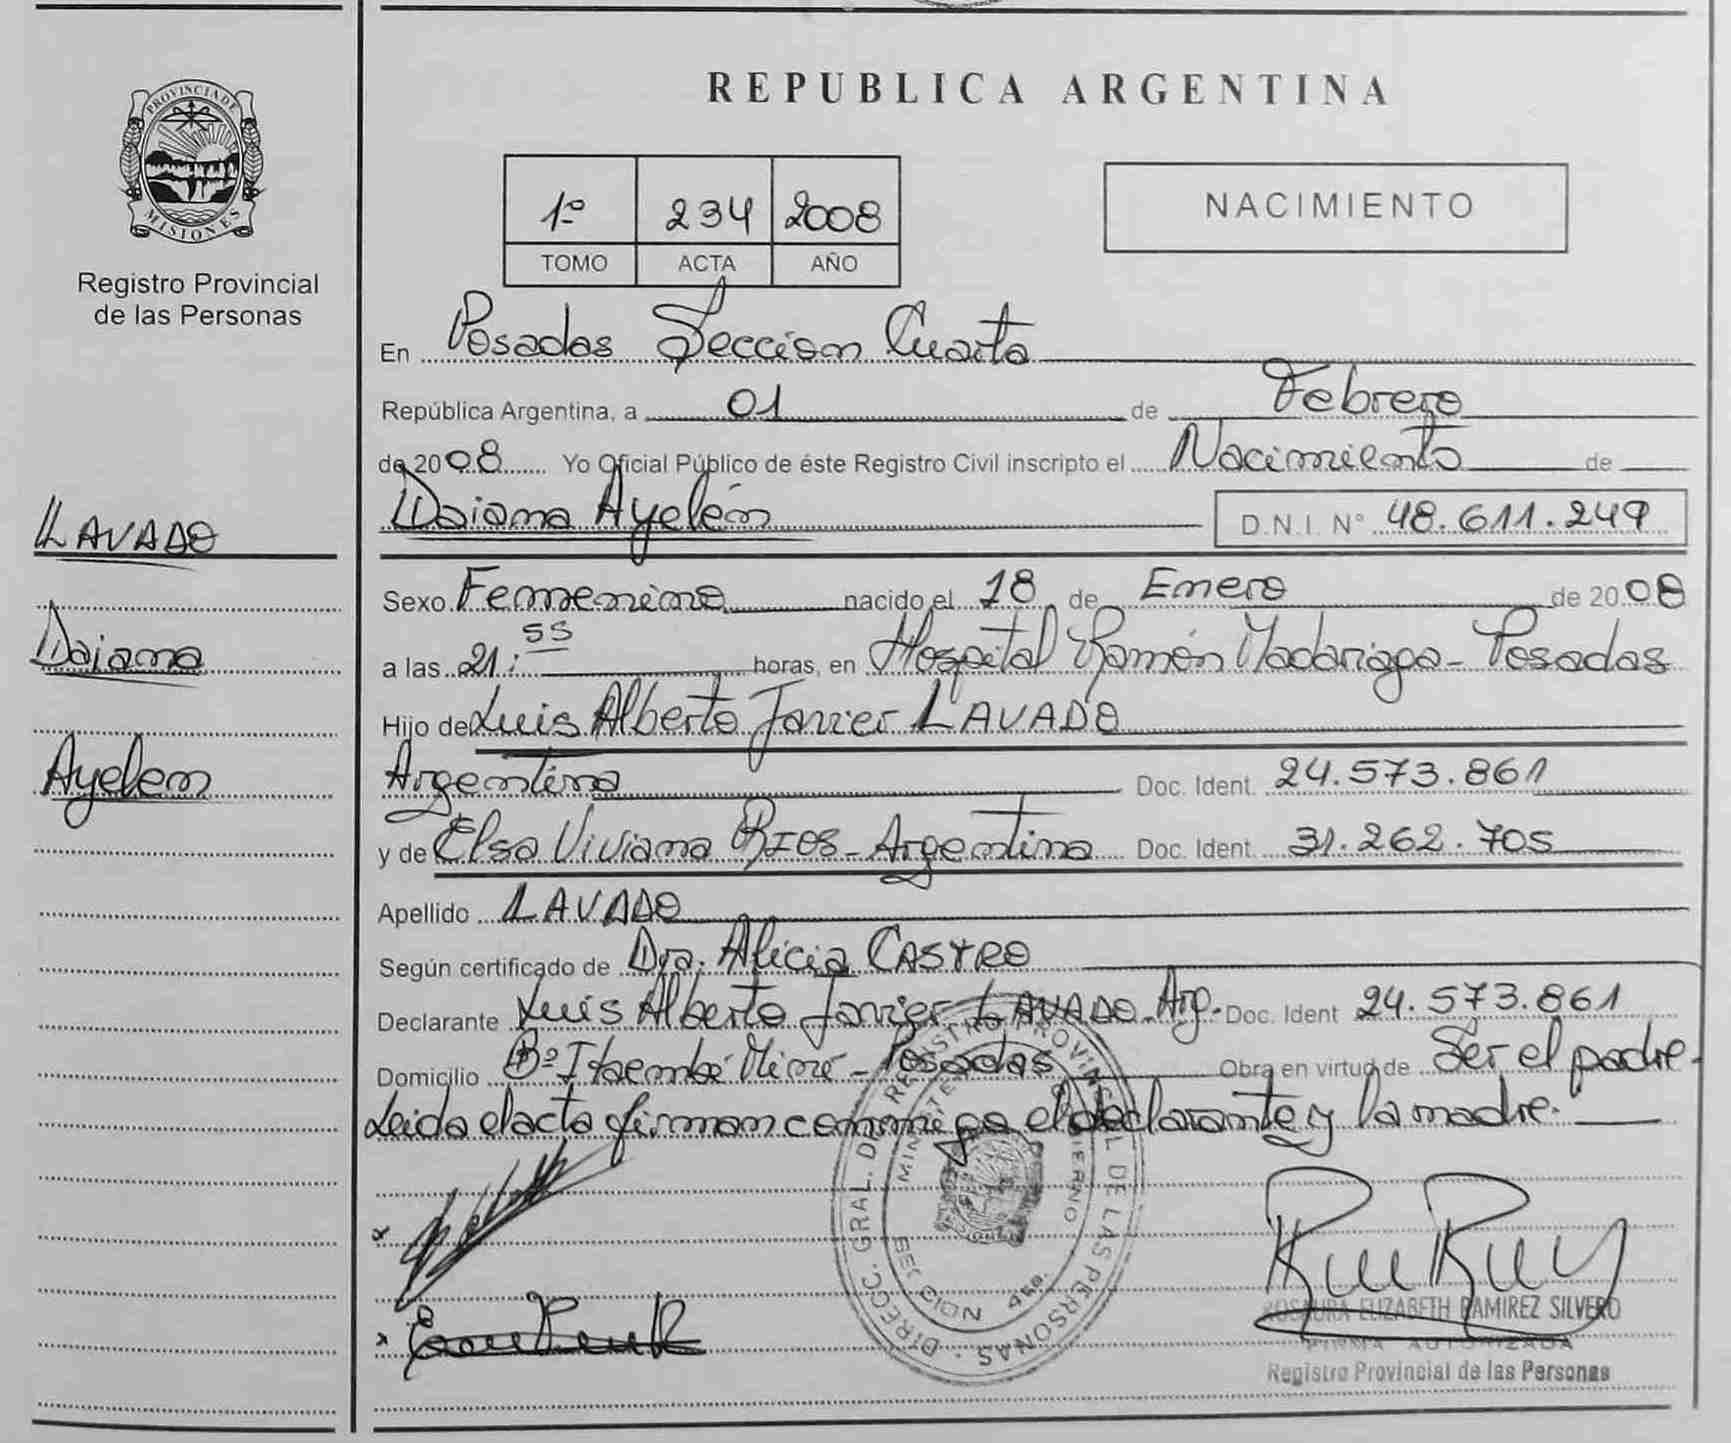 PROVINCIA DE
MISIONES
Registro Provincial
de las Personas
LAVADO
Daiana
Ayelen
REPUBLICA ARGENTINA
1º 234 2008
TOMO ACTA AÑO
NACIMIENTO
En Posadas Seccion Cuarta
República Argentina, a 01 de Febrero
de 2008 Yo Oficial Público de éste Registro Civil inscripto el Nacimiento de
Daiana Ayelén D.N.I. N° 48.611.249
Sexo Femenino nacido el 18 de Enero de 2008
a las 21:55 horas, en Hospital Ramón Madariaga - Posadas
Hijo de Luis Alberto Javier LAVADO
Argentino Doc. Ident. 24.573.861
y de Elsa Viviana RIOS - Argentina Doc. Ident. 31.262.705
Apellido LAVADO
Según certificado de Dra. Alicia CASTRO
Declarante Luis Alberto Javier LAVADO - Arg. Doc. Ident 24.573.861
Domicilio Bº Itaembé Miní - Posadas Obra en virtud de Ser el padre -
Leida el acta firman conmigo el declarante y la madre.
DIRECC. GRAL. DEL REGISTRO PROVINCIAL DE LAS PERSONAS
ROSAURA ELIZABETH RAMIREZ SILVERO
FIRMA AUTORIZADA
Registro Provincial de las Personas